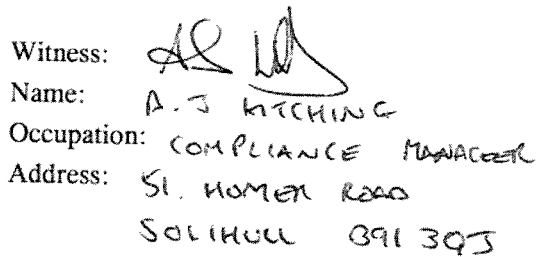 Witness:
Name: A. J KITCHING
Occupation: COMPLIANCE MANAGER
Address: 51. HOMER ROAD
SOLIHULL B91 3QJ